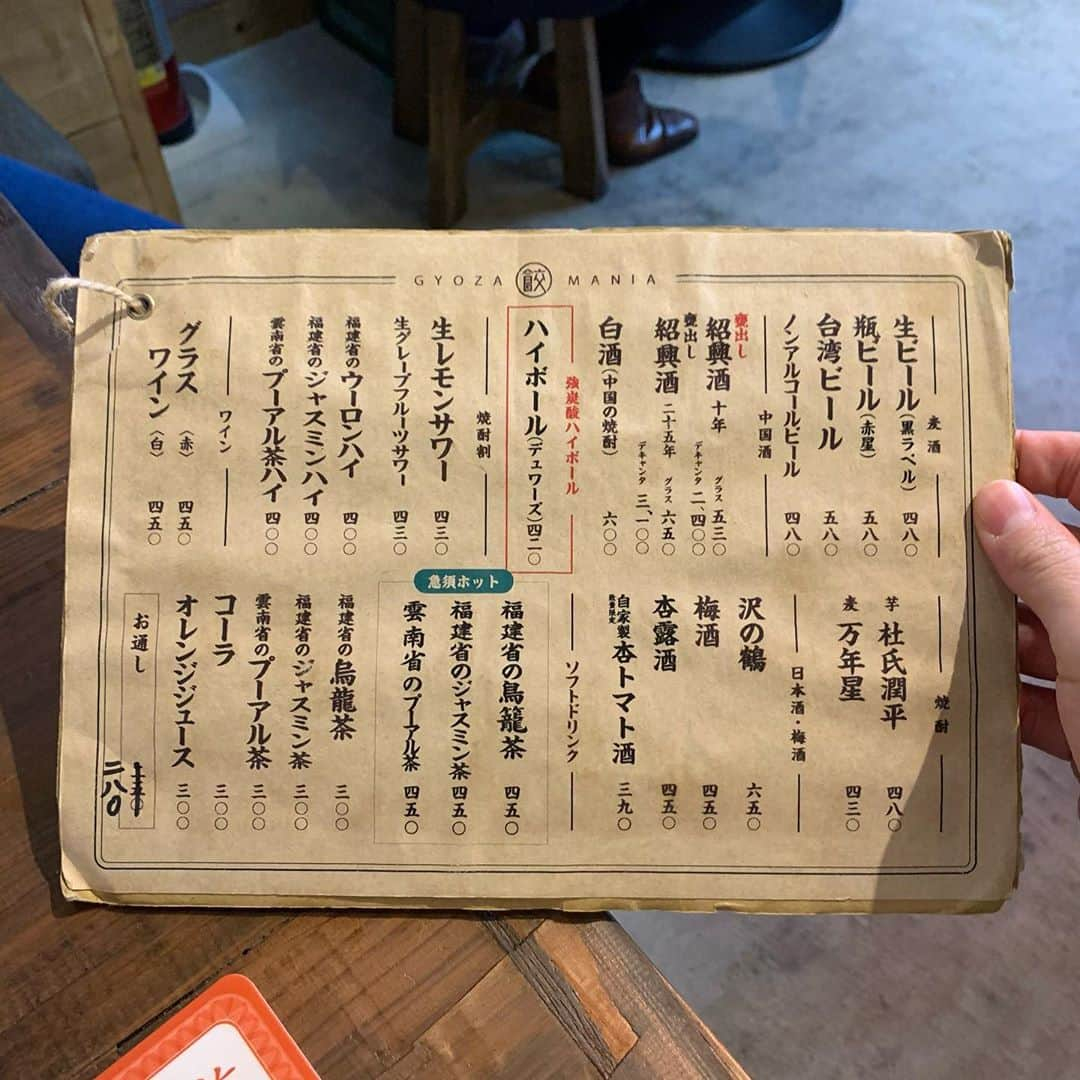 GYOZA 餃 MANIA
麦酒
生ビール(黒ラベル) 四八〇
瓶ビール(赤星) 五八〇
台湾ビール 五八〇
ノンアルコールビール 四八〇
中国酒
甕出し
紹興酒 十年 グラス 五三〇
デキャンタ 二、四〇〇
甕出し
紹興酒 二十五年 グラス 六五〇
デキャンタ 三、一〇〇
白酒(中国の焼酎) 六〇〇
強炭酸ハイボール
ハイボール(デュワーズ) 四二〇
焼酎割
生レモンサワー 四三〇
生グレープフルーツサワー 四三〇
福建省のウーロンハイ 四〇〇
福建省のジャスミンハイ 四〇〇
雲南省のプーアル茶ハイ 四〇〇
ワイン
グラス〈赤〉 四五〇
ワイン〈白〉 四五〇
焼酎
芋 杜氏潤平 四八〇
麦 万年星 四三〇
日本酒・梅酒
沢の鶴 六五〇
梅酒 四五〇
杏露酒 四五〇
自家製
数量限定
杏トマト酒 三九〇
ソフトドリンク
急須ホット
福建省の烏龍茶 四五〇
福建省のジャスミン茶 四五〇
雲南省のプーアル茶 四五〇
福建省の烏龍茶 三〇〇
福建省のジャスミン茶 三〇〇
雲南省のプーアル茶 三〇〇
コーラ 三〇〇
オレンジジュース 三〇〇
お通し
二八〇